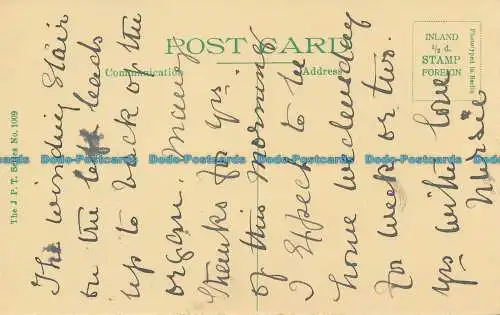 POST CARD
Communication
Address
INLAND
½ d.
STAMP
FOREIGN
Phototyped in Berlin
The J. P. T. Series No. 1009
The winding Stair
on the left leads
up to back of the
organ. Many
thanks for yrs
of this morning
I Expect to be
home Wednesday
for week or two.
yrs with love
Dodo-Postcards Dodo-Postcards Dodo-Postcards Dodo-Postcards Dodo-Postcards
Dodo-Postcards Dodo-Postcards Dodo-Postcards Dodo-Postcards Dodo-Postcards